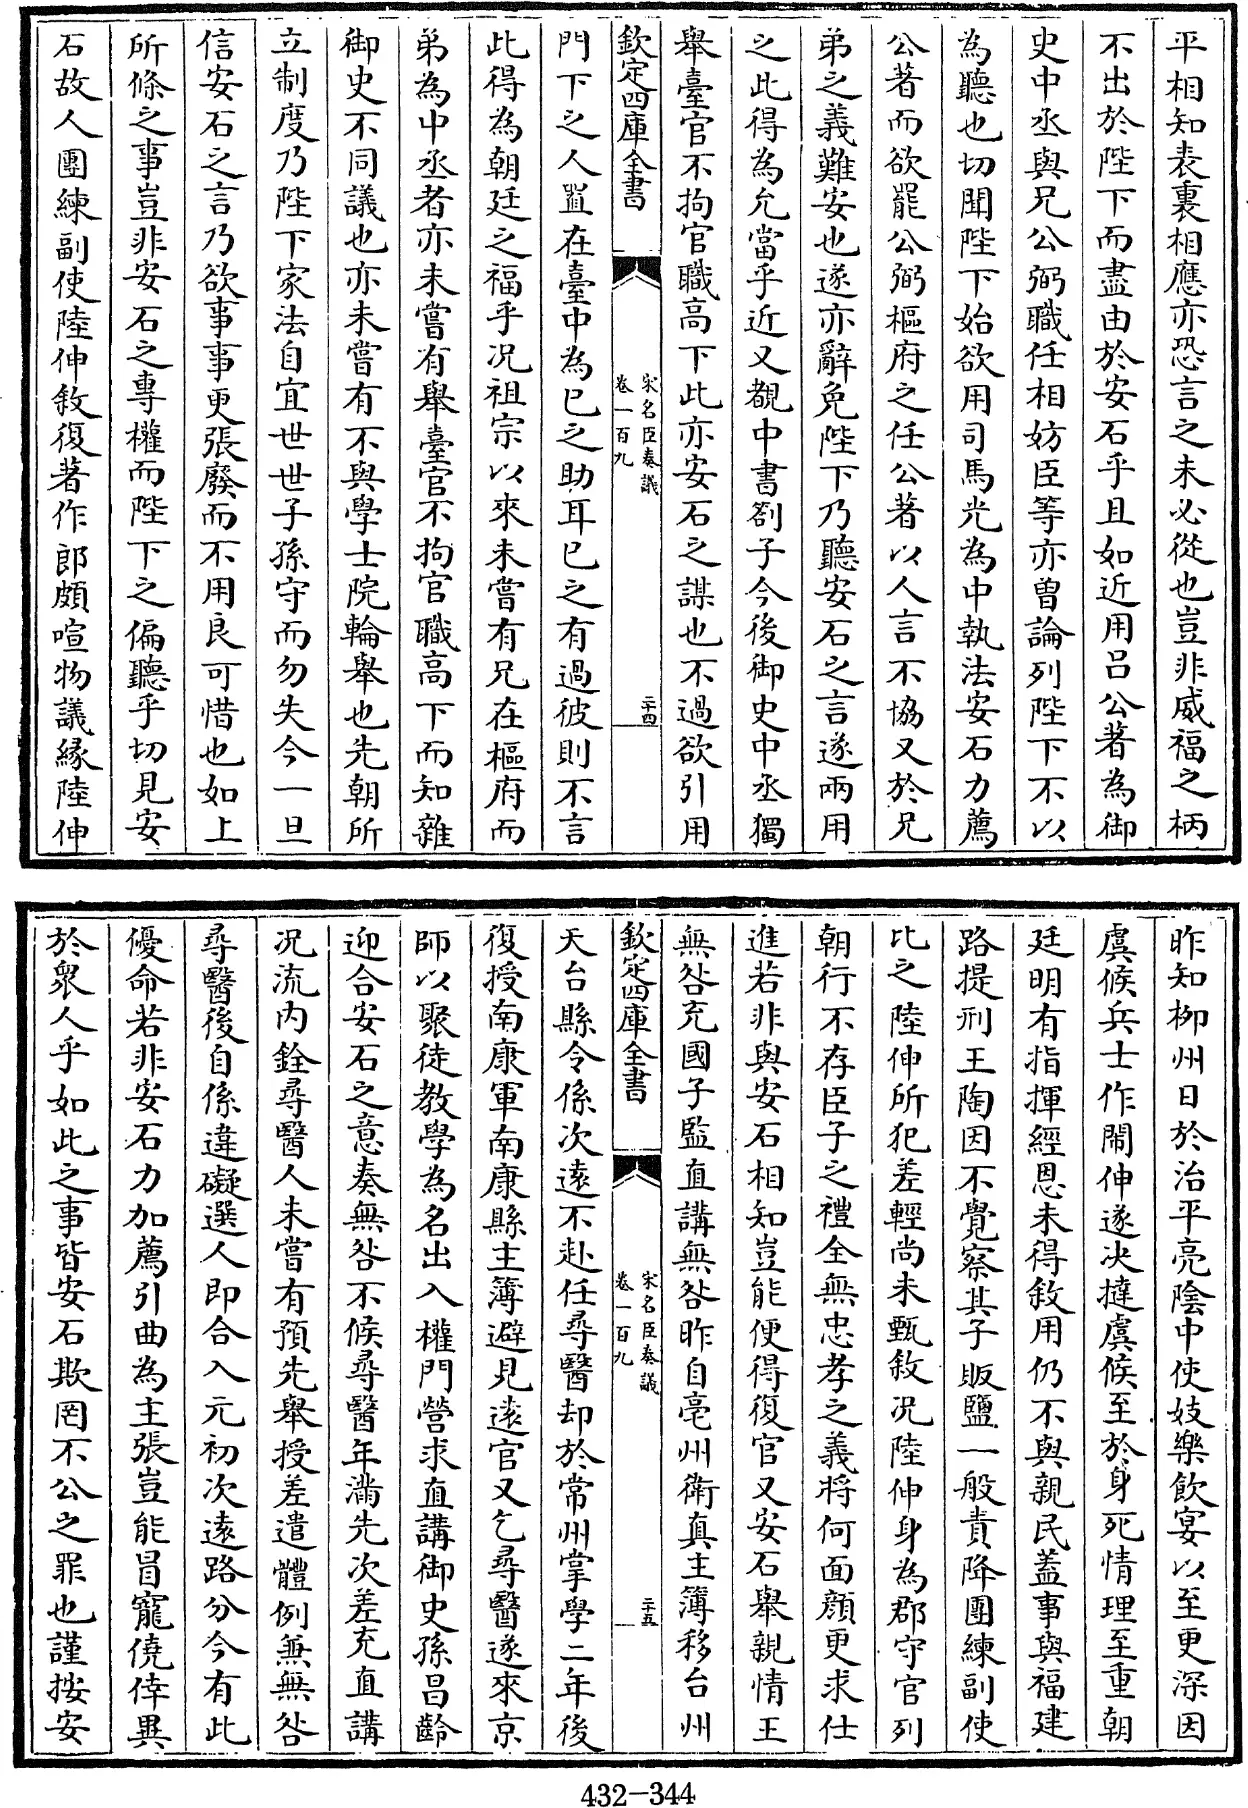 平相知表裏相應亦恐言之未必從也豈非威福之柄
不出於陛下而盡由於安石乎且如近用呂公著為御
史中丞與兄公弼職任相妨臣等亦曽論列陛下不以
為聽也切聞陛下始欲用司馬光為中執法安石力薦
公著而欲罷公弼樞府之任公著以人言不協又於兄
弟之義難安也遂亦辭免陛下乃聽安石之言遂兩用
之此得為允當乎近又覩中書劄子今後御史中丞獨
舉臺官不拘官職高下此亦安石之謀也不過欲引用
欽定四庫全書
宋名臣奏議
卷一百九
二十四
門下之人置在臺中為已之助耳已之有過彼則不言
此得為朝廷之福乎况祖宗以來未嘗有兄在樞府而
弟為中丞者亦未嘗有舉臺官不拘官職高下而知雜
御史不同議也亦未嘗有不與學士院輪舉也先朝所
立制度乃陛下家法自宜世世子孫守而勿失今一旦
信安石之言乃欲事事更張廢而不用良可惜也如上
所條之事豈非安石之專權而陛下之偏聽乎切見安
石故人團練副使陸伸敘復著作郎頗喧物議緣陸伸
昨知柳州日於治平亮陰中使妓樂飲宴以至更深因
虞候兵士作鬧伸遂决撻虞候至於身死情理至重朝
廷明有指揮經恩未得敘用仍不與親民蓋事與福建
路提刑王陶因不覺察其子販鹽一般責降團練副使
比之陸伸所犯差輕尚未甄敘况陸伸身為郡守官列
朝行不存臣子之禮全無忠孝之義將何面顏更求仕
進若非與安石相知豈能便得復官又安石舉親情王
無咎充國子監直講無咎昨自亳州衛真主簿移台州
欽定四庫全書
宋名臣奏議
卷一百九
二十五
天台縣令係次遠不赴任尋醫却於常州掌學二年後
復授南康軍南康縣主簿避見遠官又乞尋醫遂來京
師以聚徒教學為名出入權門營求直講御史孫昌齡
迎合安石之意奏無咎不候尋醫年滿先次差充直講
况流内銓尋醫人未嘗有預先舉授差遣體例兼無咎
尋醫後自係違礙選人即合入元初次遠路分今有此
優命若非安石力加薦引曲為主張豈能冒寵僥倖異
於衆人乎如此之事皆安石欺罔不公之罪也謹按安
432-344